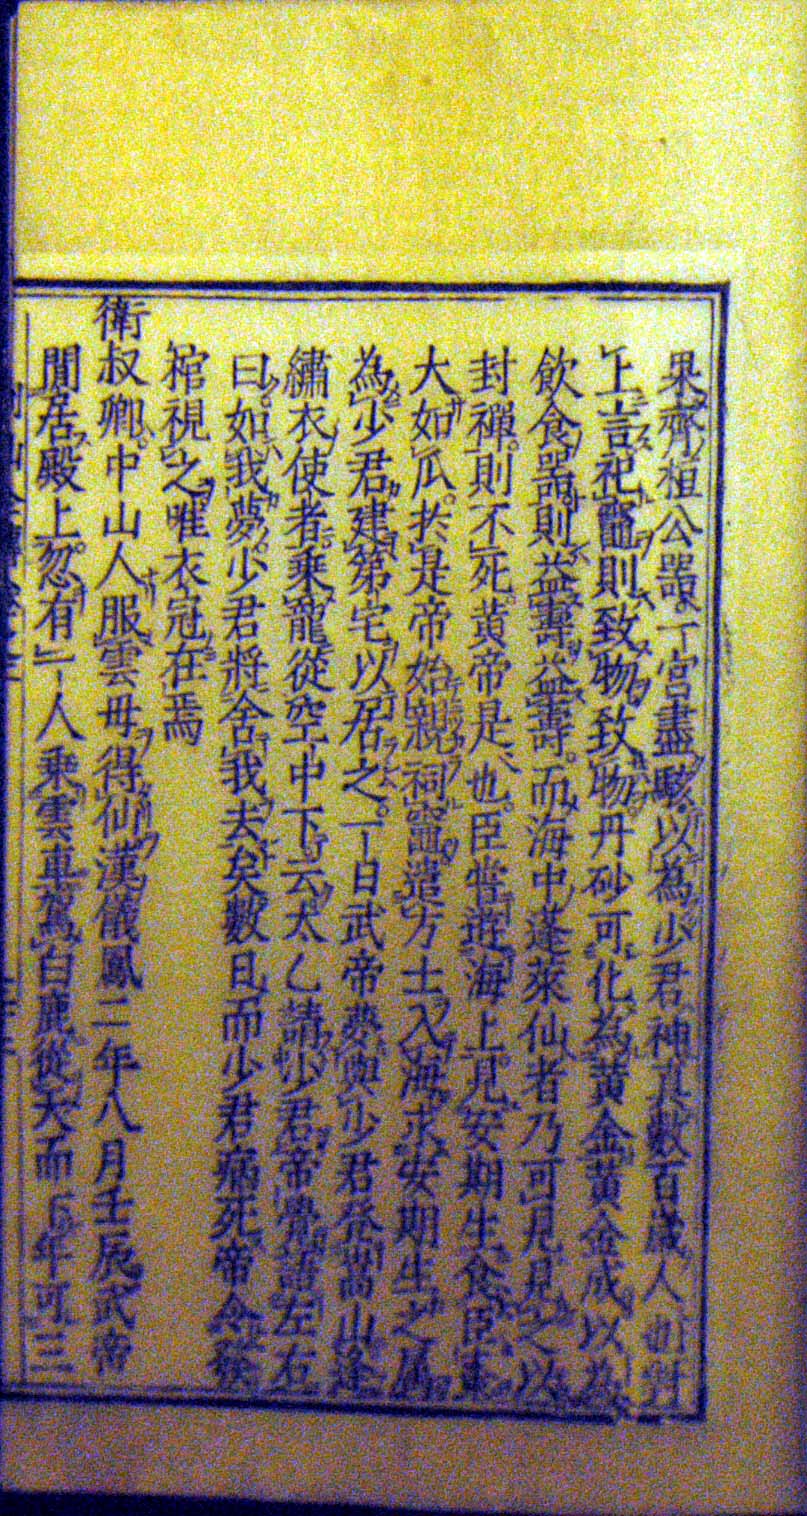 果齊桓公器一宮盡駭以為少君神真數百歲人也
上言祀竈則致物致物丹砂可化為黃金黃金成以為
飲食器則益壽益壽而海中蓬萊仙者乃可見見之以
封禪則不死黃帝是也臣嘗遊海上見安期生食臣棗
大如瓜於是帝始親祠竈遣方士入海求安期生之屬
為少君建第宅以居之一日武帝夢與少君登嵩山逢
繡衣使者乘龍從空中下云太乙請少君帝覺語左右
曰如我夢少君將舍我去矣數日而少君病死帝令發
棺視之唯衣冠在焉
衛叔卿中山人服雲毋得仙漢儀鳳二年八月壬辰武帝
閒居殿上忽有一人乘雲車駕白鹿從天而下年可三